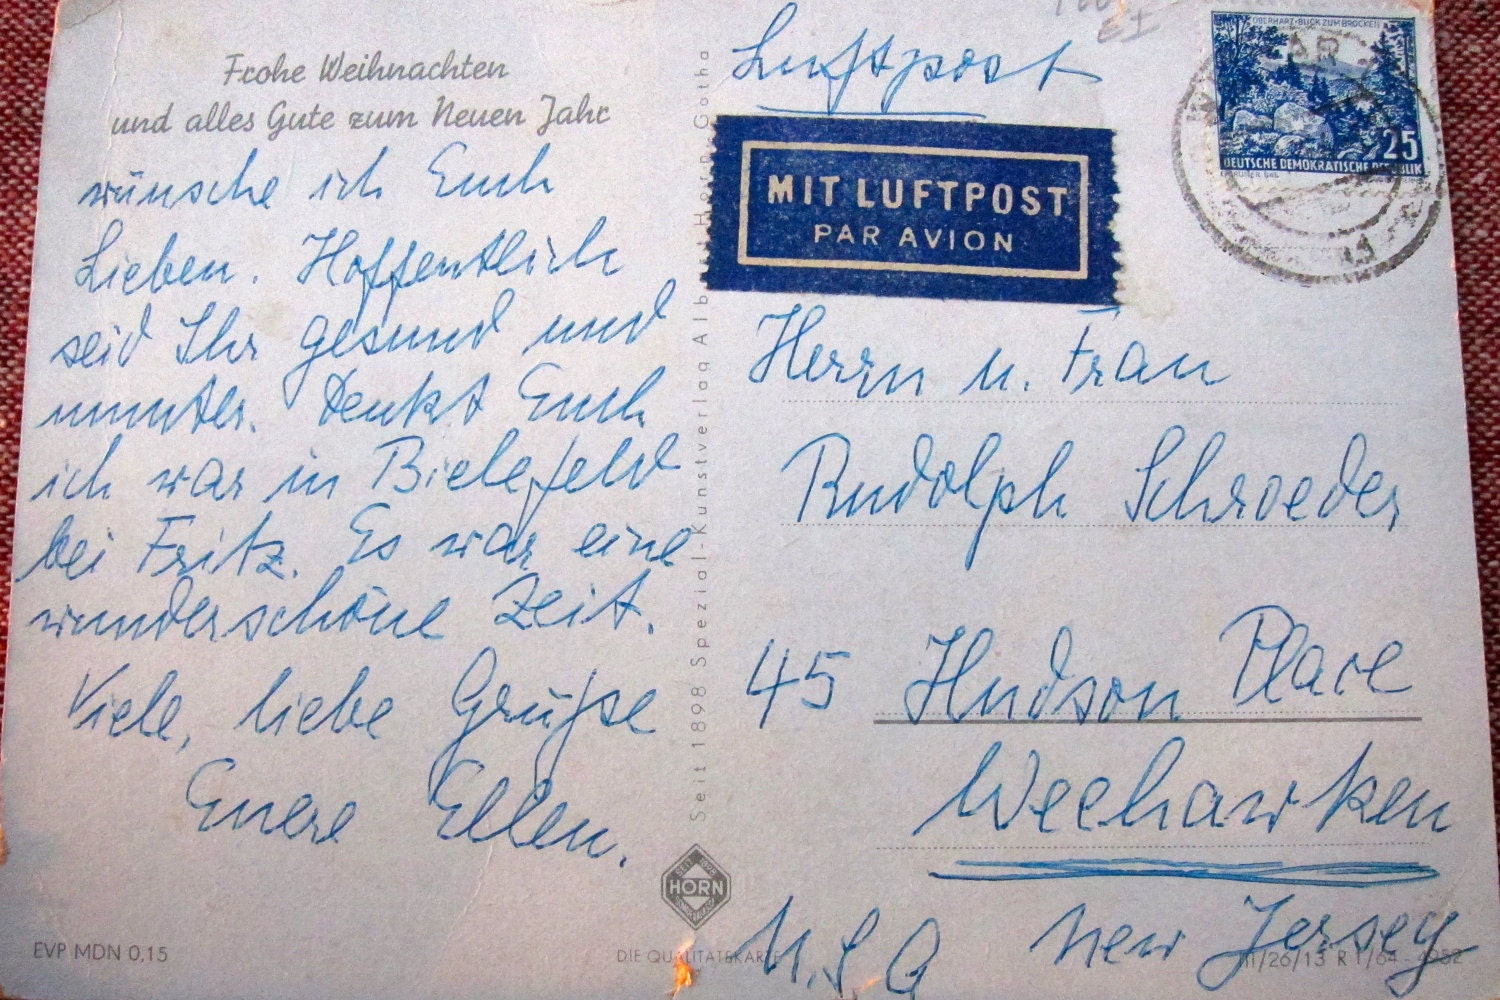 Frohe Weihnachten
und alles Gute zum Neuen Jahr
wünsche ich Euch
Lieben. Hoffentlich
seid Ihr gesund und
munter. Denkt Euch
ich war in Bielefeld
bei Fritz. Es war eine
wunderschöne Zeit.
Viele, liebe Grüße
Euere Ellen.
EVP MDN 0,15
Seit 1898 Spezial-Kunstverlag Alb. Horn, Gotha
HORN
DIE QUALITÄTSKARTE
Luftpost
MIT LUFTPOST
PAR AVION
OBERHARZ·BLICK ZUM BROCKEN
25
DEUTSCHE DEMOKRATISCHE REPUBLIK
Herrn u. Frau
Rudolph Schroeder
45 Hudson Place
Weehawken
U.S A New Jersey
III/26/13 R 1/64 - 4952